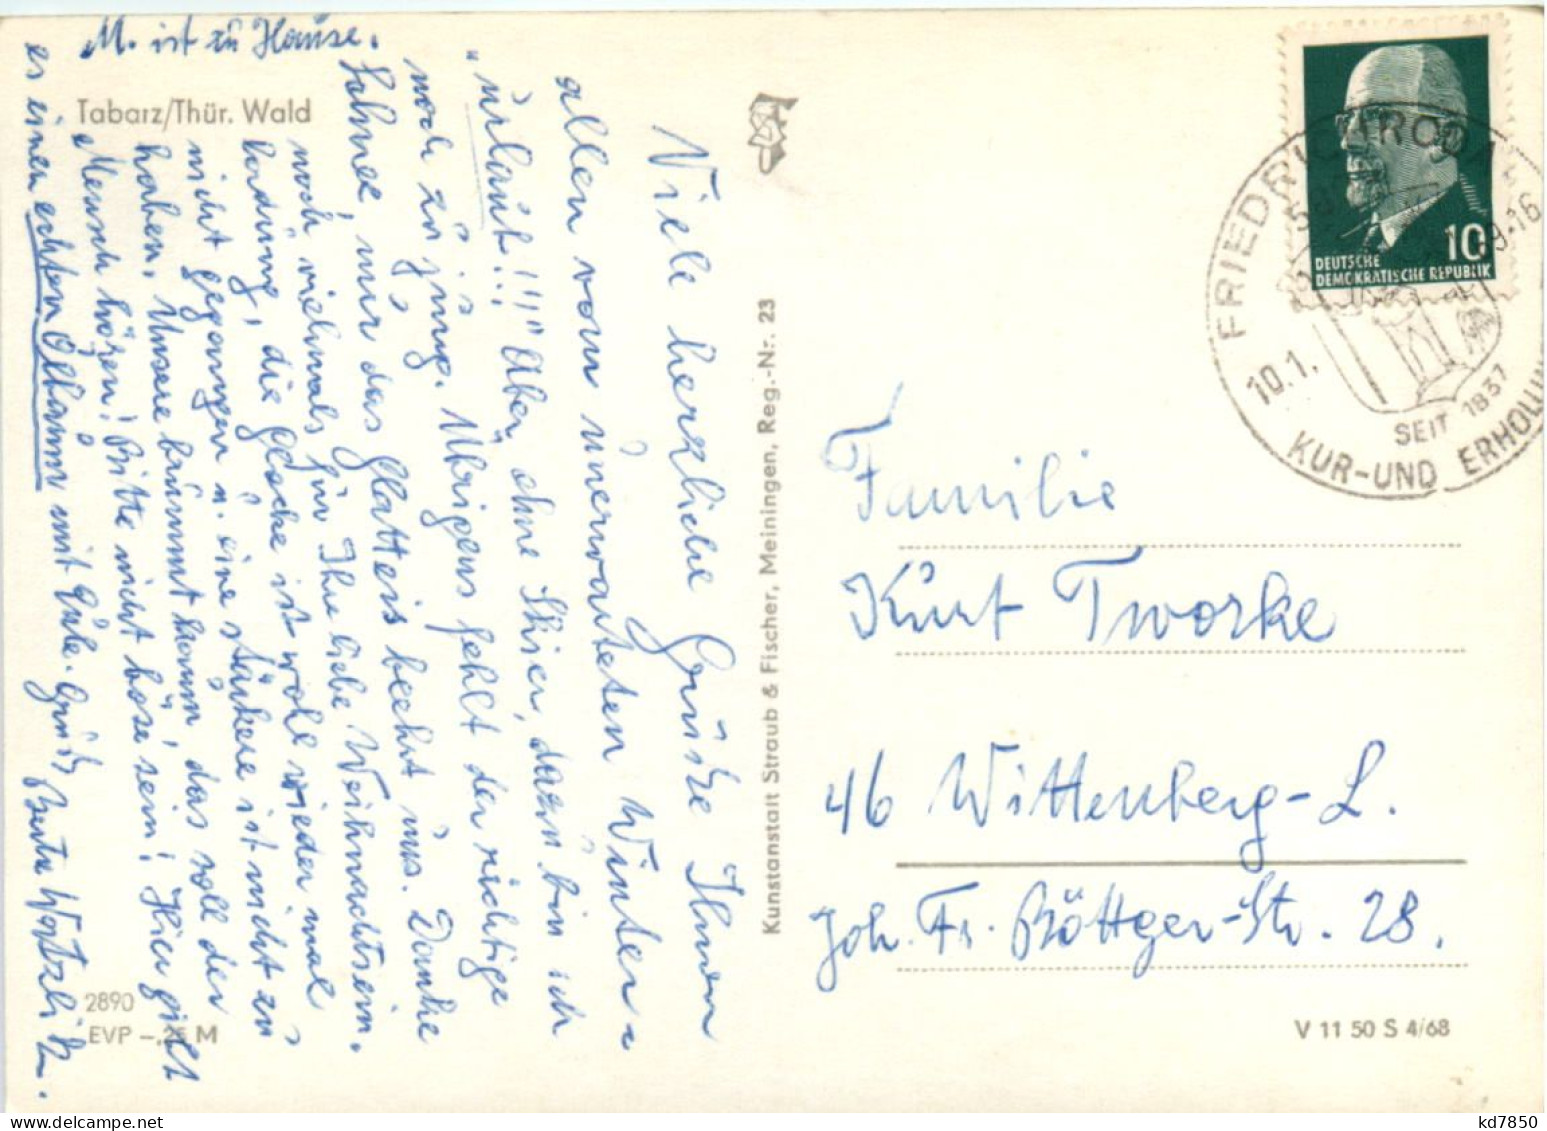 M. ist zu Hause.
Tabarz/Thür. Wald
Viele herzliche Grüße Ihnen
allen vom unerwarteten Winter-
"urlaub!!!" Aber, ohne Skier, dazu bin ich
noch zu jung. Übrigens fehlt der richtige
Schnee, nur das Glatteis beehrt uns. Danke
noch vielmals für Ihre liebe Weihnachtsein-
ladung, die Glocke ist wohl wieder mal
nicht gegangen u. eine stärkere ist nicht zu
haben. Unsere brummt kaum, das soll der
Mensch hören! Bitte nicht böse sein! Hier gibt
es einen echten Ölbaum mit Eule. Gruß
2890
EVP -,25 M
Kunstanstalt Straub & Fischer, Meiningen, Reg.-Nr. 23
10
DEUTSCHE
DEMOKRATISCHE REPUBLIK
FRIEDRICHRODA
10.1.
-16
SEIT 1837
KUR-UND
Familie
Kurt Tworke
46 Wittenberg-L.
Joh. Fr. Böttger-Str. 28.
V 11 50 S 4/68
kd7850